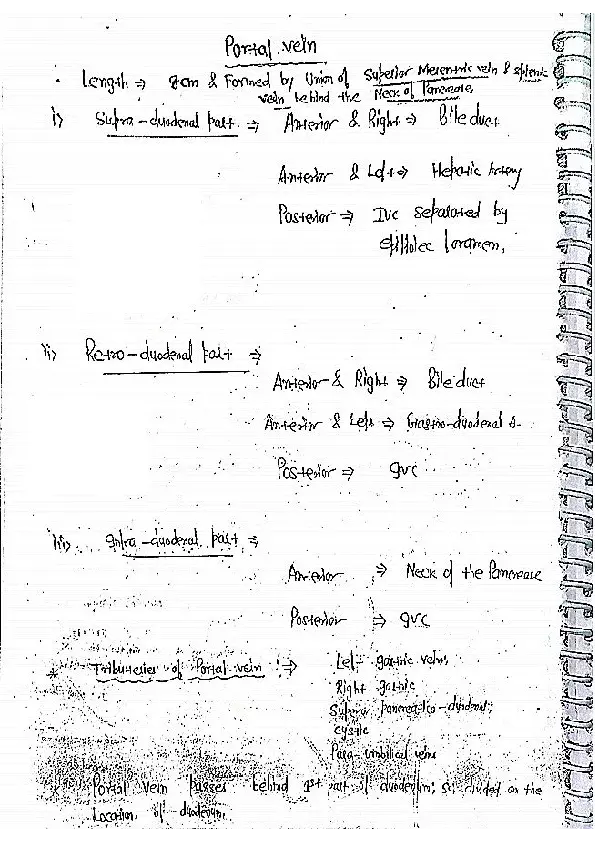 Portal vein
. Length ⇒ 8cm & Formed by Union of Superior Mesenteric vein & splenic
vein behind the Neck of Pancreas,
i) Supra-duodenal part ⇒ Anterior & Right ⇒ Bile duct
Anterior & Left ⇒ Hepatic Artery
Posterior ⇒ Ivc separated by
foramen,
ii) Retro-duodenal part ⇒
Anterior & Right ⇒ Bile duct
Anterior & Left ⇒ Gastro-duodenal
Posterior ⇒ gvc
iii) Infra-duodenal part ⇒
Anterior ⇒ Neck of the Pancrease
Posterior ⇒ gvc
* Tributeries of Portal vein :⇒ Left gastric veins,
Right gastric
pancreatico-duodenal;
cystic
Para-umbilical veins
Portal vein passes behind 1st part of duodenum; on the
Location of duodenum.